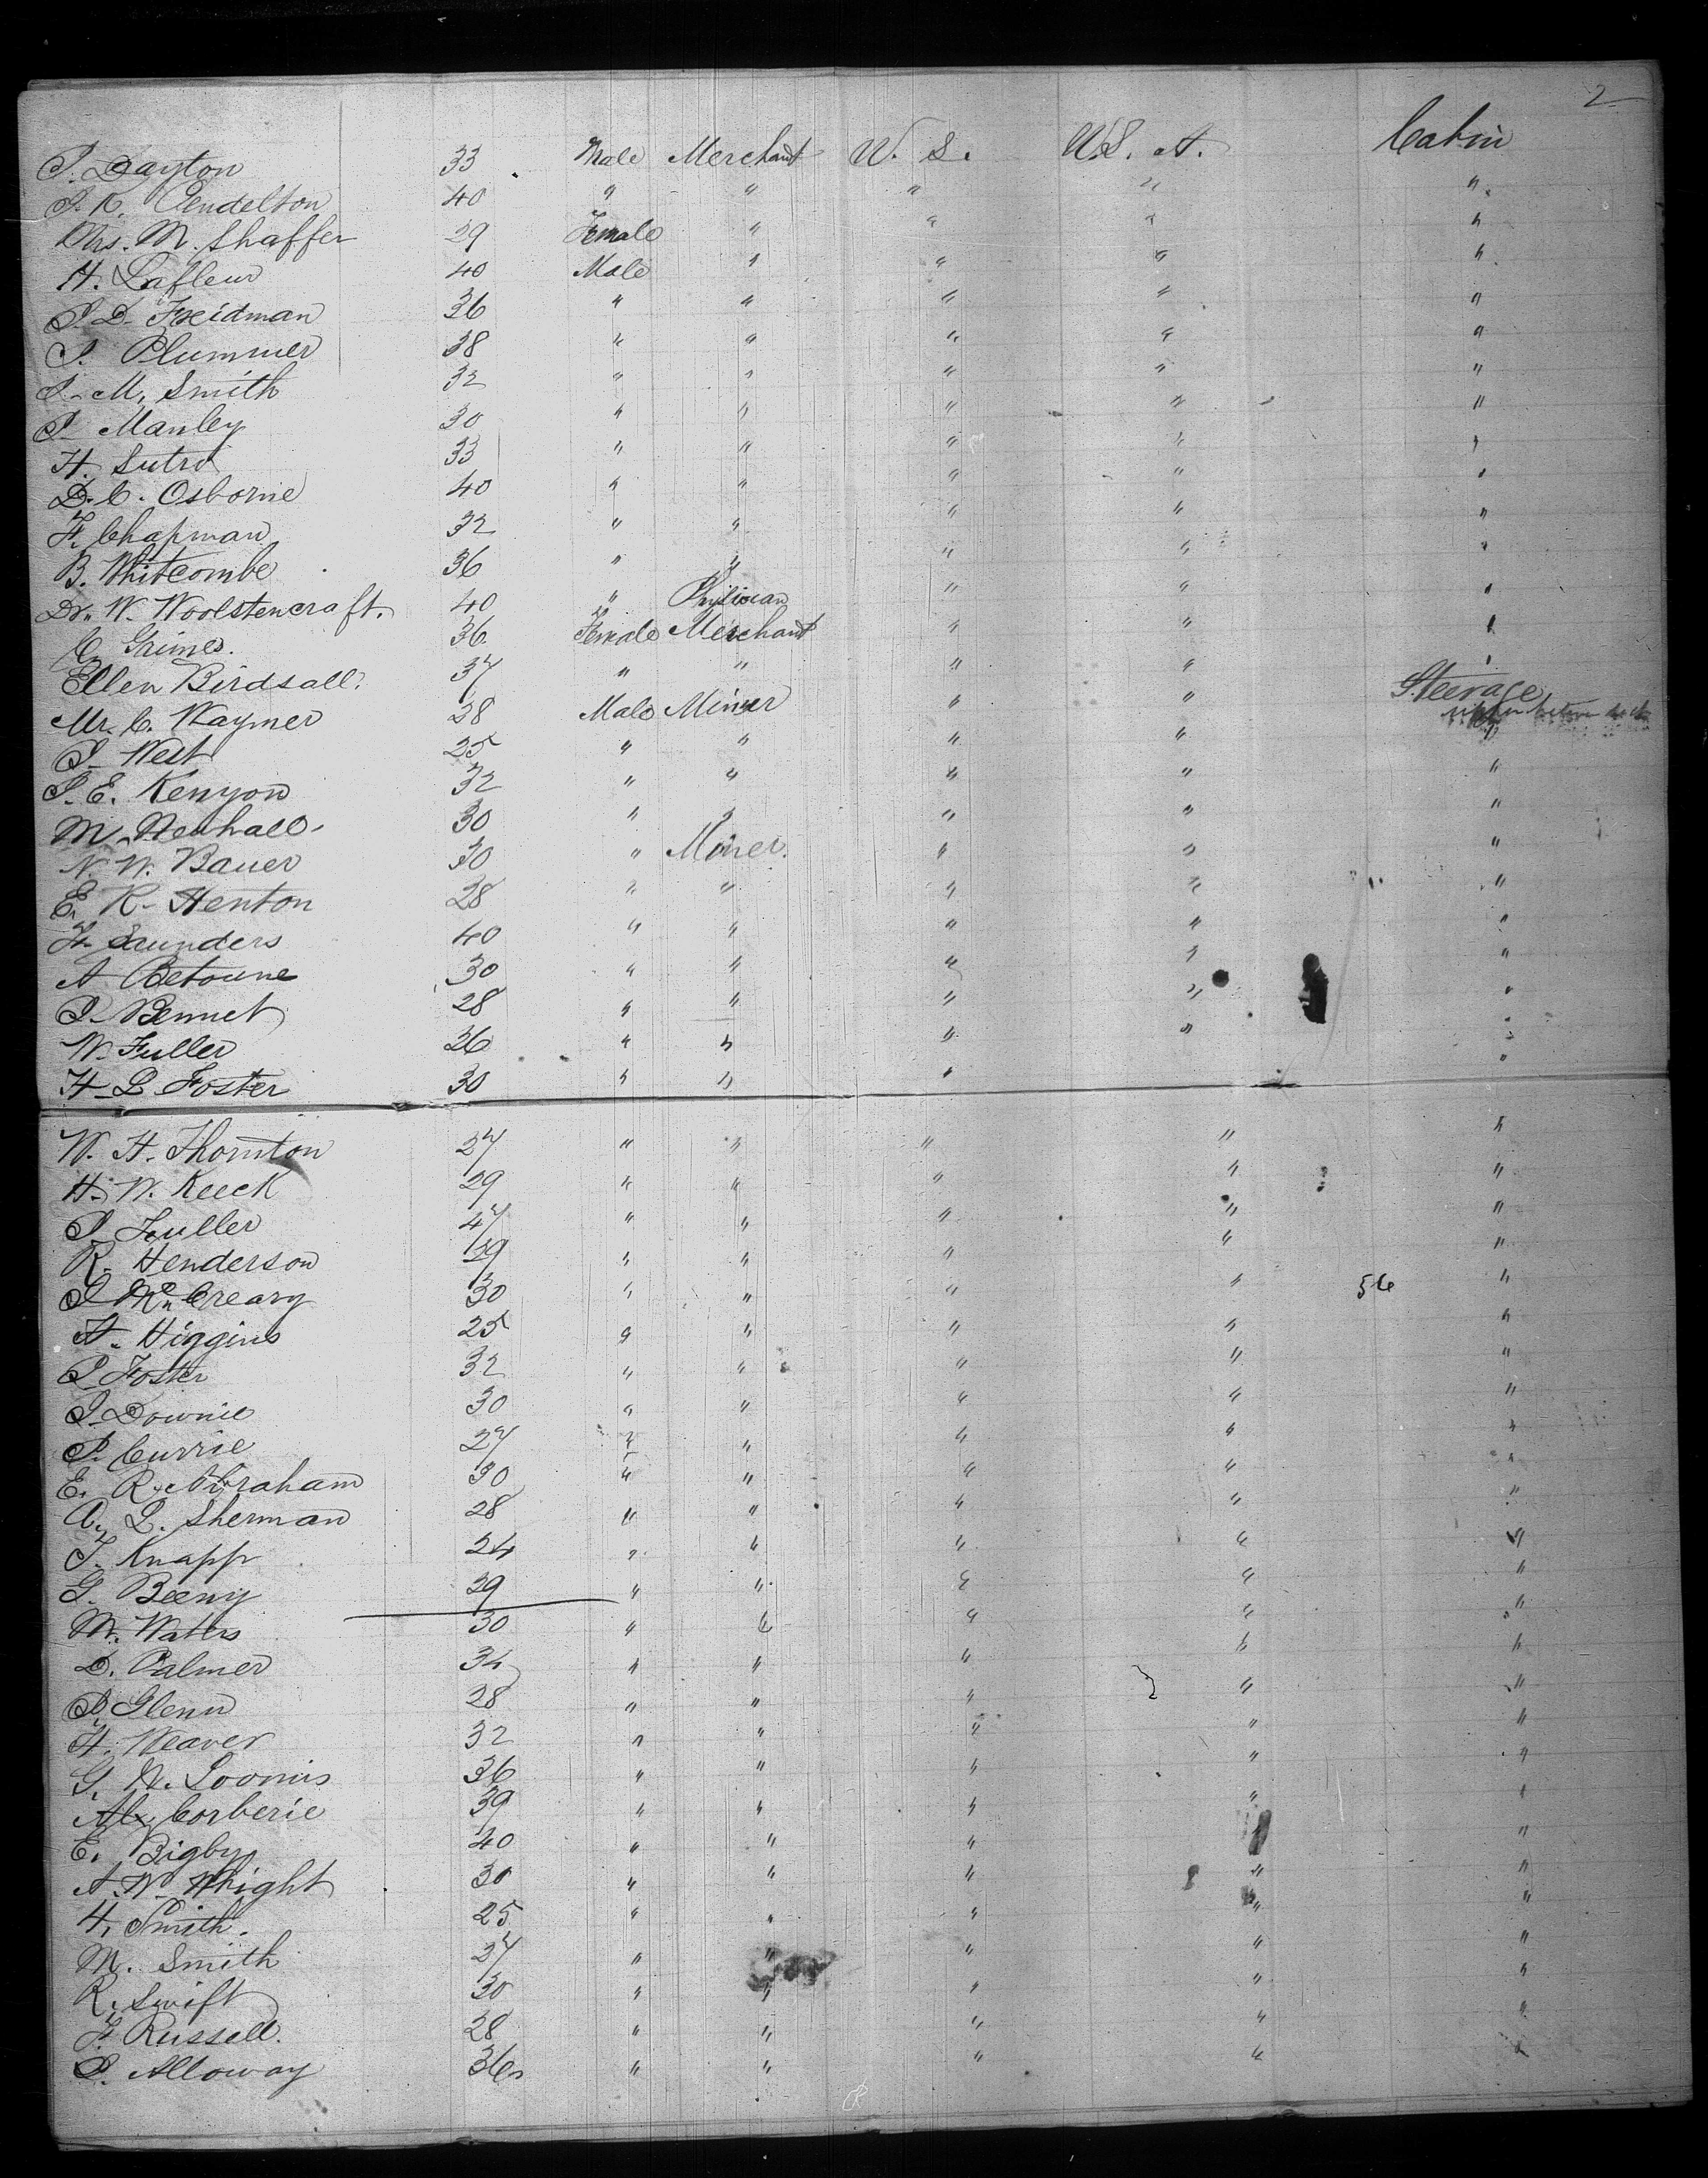 2
J. Dayton 33 Male Merchant U. S. U.S. A. Cabin
J. R. Pendelton 40 " " " " "
Mrs. M. Shaffer 29 Female " " " "
H. Lafleur 40 Male " " " "
J. D. Freidman 36 " " " " "
J. Plummer 38 " " " " "
J. M. Smith 32 " " " " "
J. Manley 30 " " " " "
H. Sutro 33 " " " " "
D. C. Osborne 40 " " " " "
F. Chapman 32 " " " " "
B. Whitcombe 36 " " " " "
Dr. W. Woolstencraft. 40 " Physician " " "
C. Grimes. 36 Female Merchant " " "
Ellen Birdsall. 37 " " " " "
Mr. C. Waymer 28 Male Miner " " Steerage
J. West 25 " " " " "
J. E. Kenyon 32 " " " " "
M. Newhall 30 " " " " "
N. W. Bauer 30 " Miner. " " "
E. R. Henton 28 " " " " "
F. Saunders 40 " " " " "
A Betoune 30 " " " " "
J. Bennet 28 " " " " "
W. Fuller 26 " " " " "
H. L. Foster 30 " " " " "
W. H. Thornton 27 " " " " "
H. W. Keeck 29 " " " " "
J. Fuller 47 " " " " "
R. Henderson 29 " " " " "
J. McCreary 30 " " " " 56 "
H. Higgins 25 " " " " "
J. Foster 32 " " " " "
J. Downie 30 " " " " "
P. Currie 27 " " " " "
E. R. Abraham 30 " " " " "
A. L. Sherman 28 " " " " "
T. Knapp 24 " " " " "
G. Beeny 29 " " " " "
M. Waters 30 " " " " "
D. Palmer 34 " " " " "
J. Glenn 28 " " " " "
H. Weaver 32 " " " " "
G. N. Loomis 36 " " " " "
Alx. Corberie 39 " " " " "
E. Bigby 40 " " " " "
A. W. Wright 30 " " " " "
H. Smith. 25 " " " " "
M. Smith 27 " " " " "
R. Swift 30 " " " " "
F. Russell. 28 " " " " "
J. Alloway 36 " " " " "